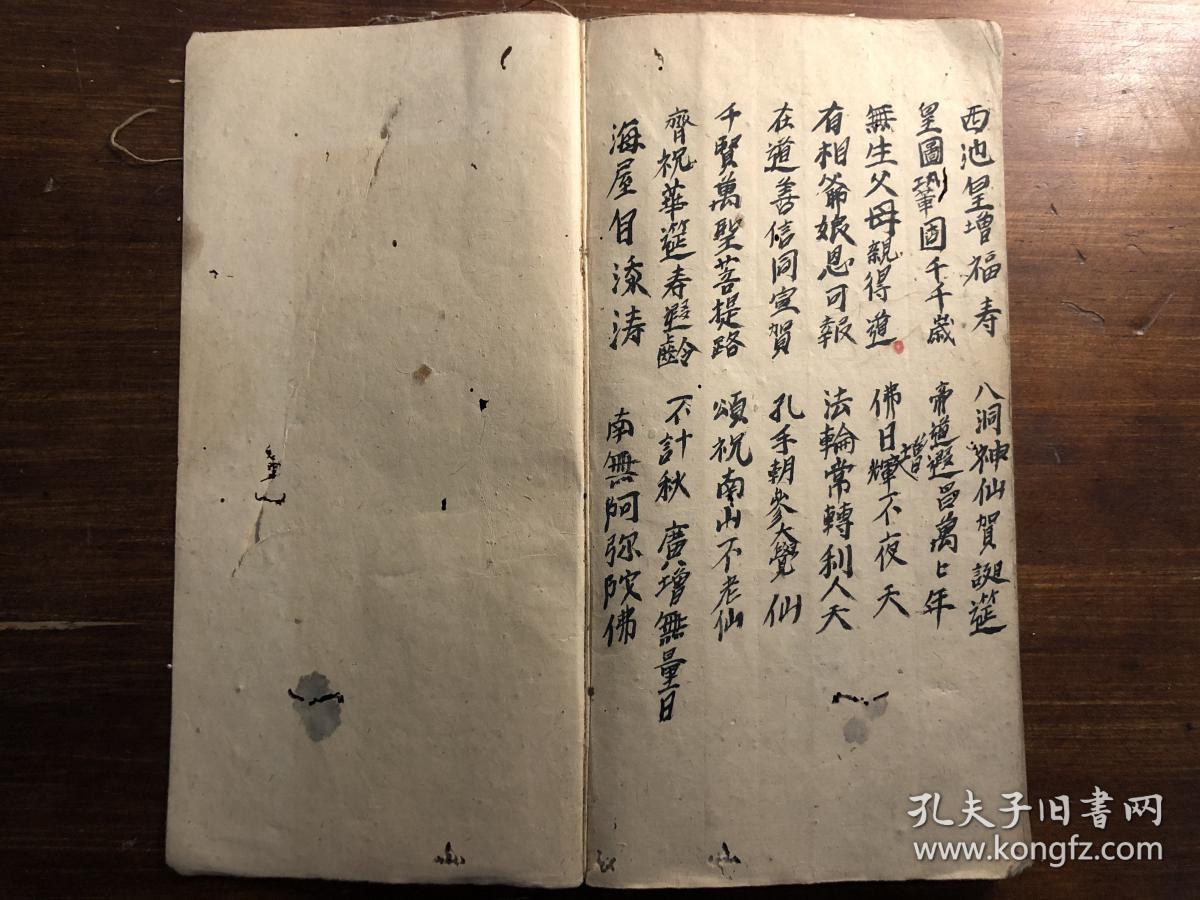 西池皇增福寿 八洞神仙賀誕筵
皇圖鞏固千千歲 帝道遐昌萬匕年
無生父母親得道 佛日增輝不夜天
有相爺娘恩可報 法輪常轉利人天
在道善信同宣賀 孔手朝參大覺仙
千賢萬聖菩提路 頌祝南山不老仙
齊祝華筵寿遐齡 不計秋 廣增無量日
海屋自添涛 南無阿弥陀佛
孔夫子旧书网
www.kongfz.com